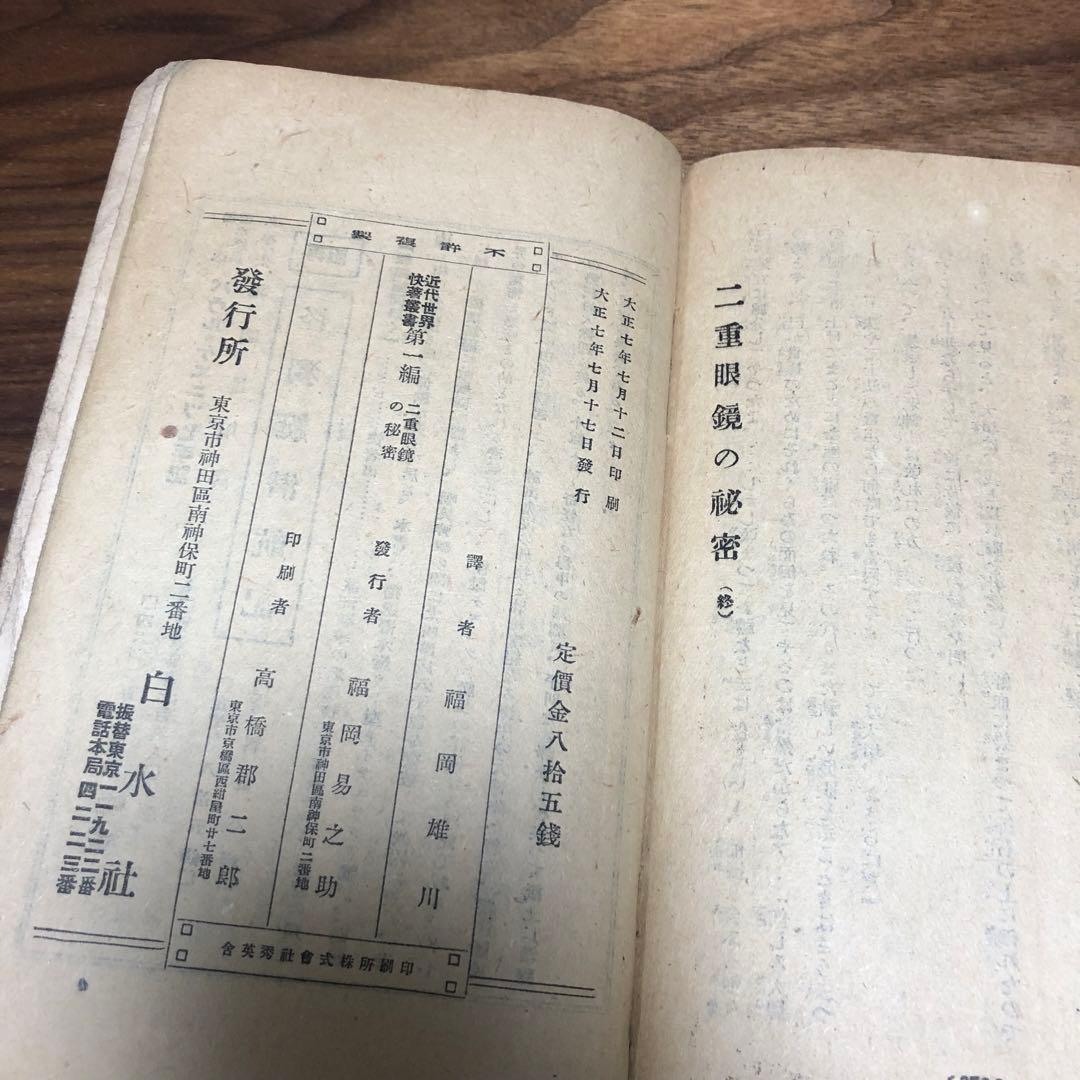 二重眼鏡の祕密（終）
大正七年七月十二日印刷
大正七年七月十七日發行
定價金八拾五錢
不許複製
譯者　福岡雄川
近代世界快著叢書第一編　二重眼鏡の秘密
發行者　福岡易之助
東京市神田區南神保町二番地
印刷者　高橋郡二郎
東京市京橋區西紺屋町廿七番地
發行所
東京市神田區南神保町二番地
白水社
電話本局四二二三番
印刷所株式會社秀英舍